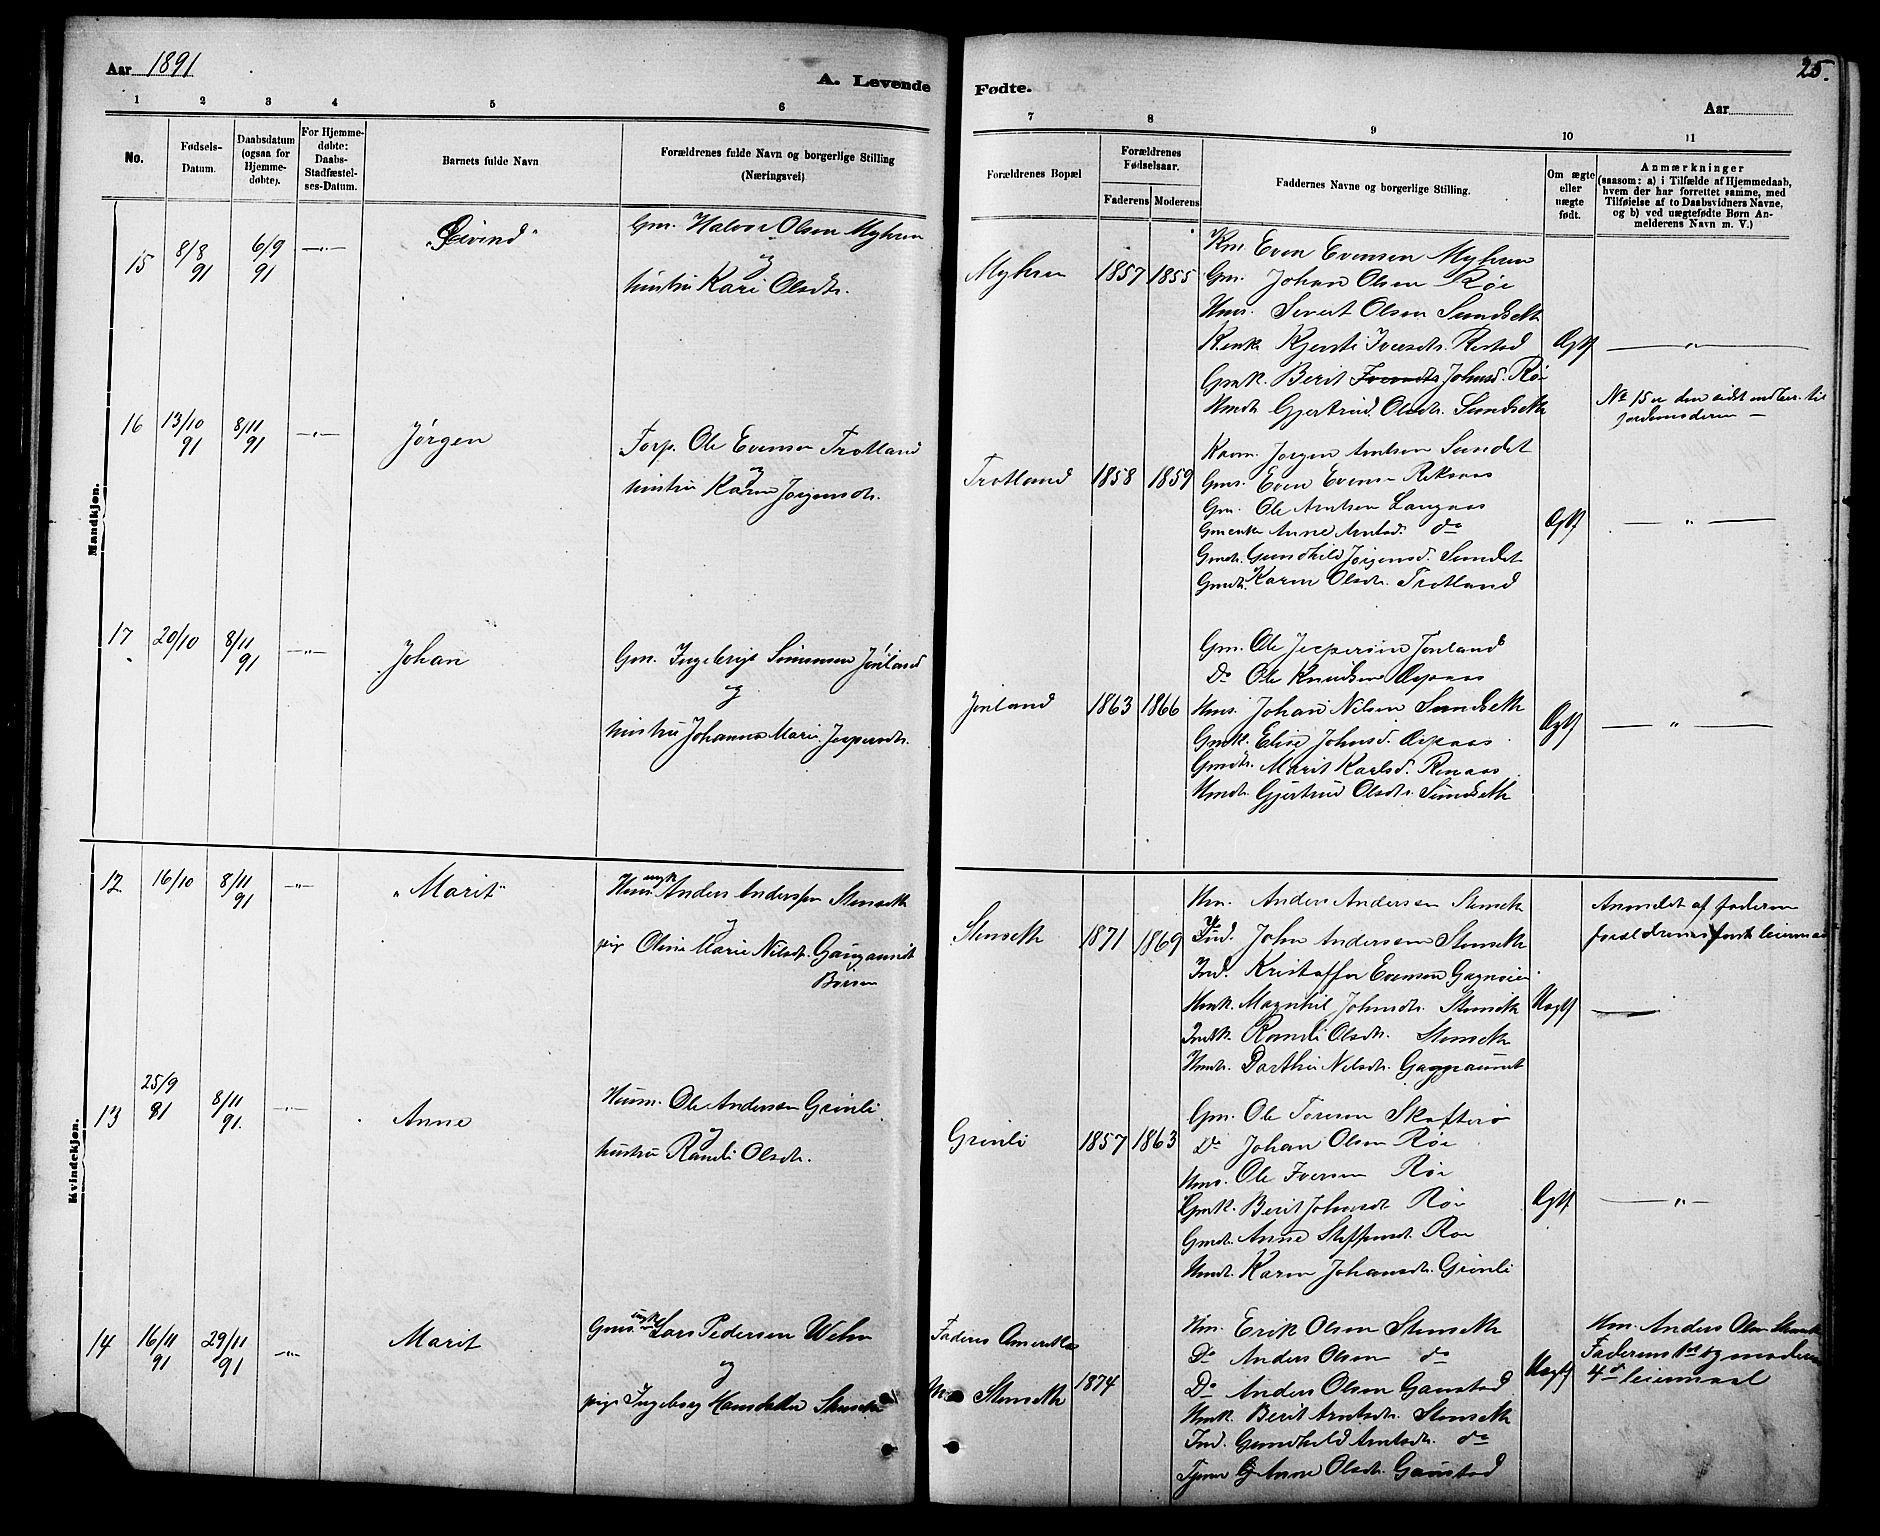 Aar 1891
A. Levende
Fødte.
25.
Aar
1 2 3 4 5 6 7 8 9 10 11
No.
Fødsels-
Datum.
Daabsdatum
(ogsaa for
Hjemme-
døbte).
For Hjemme-
døbte:
Daabs-
Stadfæstel-
ses-Datum.
Barnets fulde Navn
Forældrenes fulde Navn og borgerlige Stilling
(Næringsvei)
Forældrenes Bopæl
Forældrenes
Fødselsaar.
Faderens
Moderens
Faddernes Navne og borgerlige Stilling.
Om ægte
eller
uægte
født.
Anmærkninger
(saasom: a) i Tilfælde af Hjemmedaab,
hvem der har forrettet samme, med
Tilføielse af to Daabsvidners Navne,
og b) ved uægtefødte Børn An-
melderens Navn m. V.)
Mandkjøn.
15
8/8
91
6/9
91
—„—
„Eivind“
Gm. Halvor Olsen Myhren
og
hustru Kari Olsdtr.
Myhren
1857 1855
Km. Even Evensen Myhren
Gm. Johan Olsen Røe
Hms. Sivert Olsen Sundseth
Kjersti Iversdtr. Rostad
Gmk. Berit Johnsd. Røe
Hmdtr. Gjertrud Olsdtr. Sundseth
Ægte
— „ —
No 15 er den sidst indber. til
Jordemoderen —
16
13/10
91
8/11
91
—„—
Jørgen
Forp. Ole Evensen Trotland
og
hustru Karen Jørgensdtr.
Trotland
1858 1859
Jørgen Arntsen Sundet
Gms. Even Evensen
Gm. Ole Arntsen Langaas
Gmenke Anne Arntsd. do
Gmdtr. Gundhild Jørgensd. Sundet
Gmdtr. Karen Olsdtr. Trotland
Ægte
— „ —
17
20/10
8/11
91
—„—
Johan
Gm. Ingebrigt Simonsen Jønland
og
hustru Johanna Marie Jespersdtr.
Jønland
1863 1866
Gm. Ole Jespersen Jønland
Do Ole Knudsen Aspaas
Hms. Johan Nilsen Sundseth
Gmk. Elise Johnsd. Aspaas
Gmdtr. Marit Karlsd. Renaas
Hmdtr. Gjertrud Olsdtr. Sundseth
Ægte
— „ —
Kvindekjøn.
12
16/10
8/11
91
—„—
„Marit“
Hms ungk. Anders Anderssen Stenseth
og
pige Oline Marie Nilsdtr. Gangaunet
Børsen
Stenseth
1871 1869
Hm. Anders Andersen Stenseth
Ind. John Andersen Stenseth
Ind. Kristoffer Evensen
Hmk. Magnhil Johnsdtr. Stenseth
Indk. Randi Olsdtr. Stenseth
Hmdtr. Dorthea Nilsdtr.
Uægte
Anmeldt af faderen
forældrenes første leiermaal
—
13
25/9
91
8/11
91.
—„—
Anne
Husm. Ole Andersen Grinli
og
hustru Randi Olsdtr.
Grinli
1857 1863
Gm. Ole Toresen
Do Johan Olsen Røe
Hms. Ole Iversen Røe
Gmk. Berit Johnsdtr. Røe
Gmdtr. Anne Steffensdtr. Røe
Hmdtr. Karen Johansdtr. Grinli
Ægte
— „ —
14
16/11
91
29/11
91
—„—
Marit
Gms. ungk. Lars Pedersen
og
pige Ingeborg Hansdatter Stenseth
Faderes Amerika
M. Stenseth
1874
Hm. Erik Olsen Stenseth
Do Anders Olsen do
Do Anders Olsen Gaustad
Hmk. Berit Arntsdtr. Stenseth
Ind. Gundhild Arntsdtr. do
Anne Olsdtr. Gaustad
Uægte
Hm. Anders Olsen Stenseth
Faderens 1ste og moderens
4de leiermaal